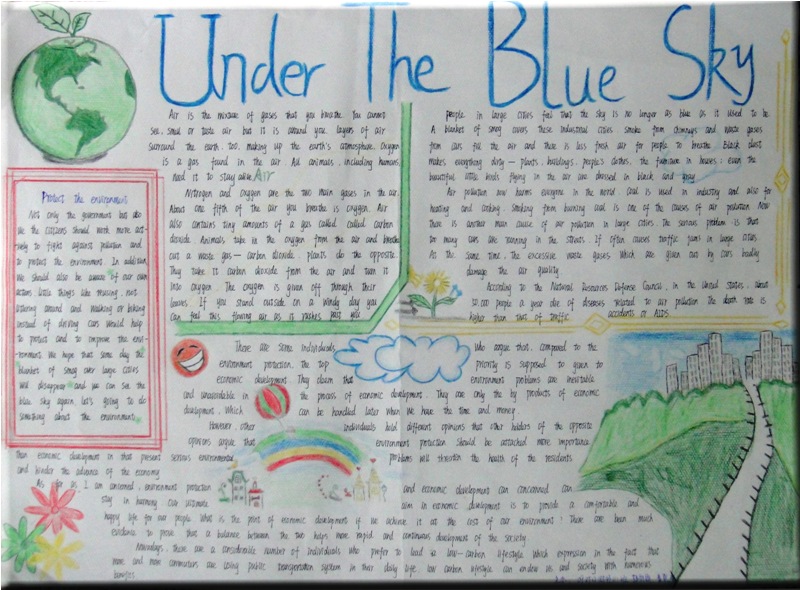 Under The Blue Sky
Air is the mixture of gases that you breathe. You cannot
see, smell or taste air but it is around you. layers of air
surround the earth, too, making up the earth's atmosphere. Oxygen
is a gas found in the air. All animals, including humans,
need it to stay alive. Air
Nitrogen and oxygen are the two main gases in the air.
About one fifth of the air you breathe is oxygen. Air
also contains tiny amounts of a gas called called carbon
dioxide. Animals take in the oxygen from the air and breathe
out a waste gas — carbon dioxide. plants do the opposite.
They take it carbon dioxide from the air and turn it
into oxygen. The oxygen is given off through their
leaves. If you stand outside on a windy day you
can feel this flowing air as it rushes past you
people in large cities feel that the sky is no longer as blue as it used to be.
A blanket of smog covers these industrial cities. smoke from chimneys and waste gases
from cars fill the air and there is less fresh air for people to breathe. Black dust
makes everything dirty — plants, buildings, people's clothes, the furniture in houses; even the
beautiful little birds flying in the air are dressed in black and gray.
Air pollution now harms everyone in the world. coal is used in industry and also for
heating and cooking. smoking from burning coal is one of the causes of air pollution. Now
there is another main cause of air pollution in large cities. The serious problem is that
too many cars are running in the streets. If often causes traffic jams in large cities.
At the same time, the excessive waste gases. Which are given out by cars badly
damage the air quality.
According to the Natural Resources Defense Council, in the United States, about
people a year die of diseases related to air pollution. the death rate is
higher than that of traffic accidents or AIDS.
Protect the environment
Not only the government but also
we the citizens should work more act-
ively to fight against pollution and
to protect the environment. In addition,
We should also be aware of our own
actions little things like reusing, not
littering around and walking or biking
instead of driving cars would help
to protect and to improve the envi-
ronment. We hope that some day the
blanket of smog over large cities
will disappear and we can see the
blue sky again. let's going to do
something about the environment.
There are some individuals Who argue that, compared to the
environment protection, the top priority is supposed to given to
economic development. They claim that environment problems are inevitable
and unavoidable in the process of economic development. They are only the by products of economic
development. Which can be handled later when we have the time and money.
However, other individuals hold different opinions that other holders of the opposite
opinions argue that environment protection should be attached more importance
than economic development in that present serious environmental problems will threaten the health of the residents
and hinder the advance of the economy.
As far as I am concerned, environment protection and economic development can concerned can
stay in harmony. Our ultimate aim in economic development is to provide a comfortable and
happy life for our people. What is the point of economic development if we achieve it at the cost of our environment? There are been much
evidence to prove that a balance between the two helps more rapid and continuous development of the society.
Nowadays, there are a considerable number of individuals who prefer to lead a low-carbon lifestyle. Which expression in the fact that
more and more commuters are using public transportation system in their daily life. low carbon lifestyle can endow us and society with numerous
benefits.